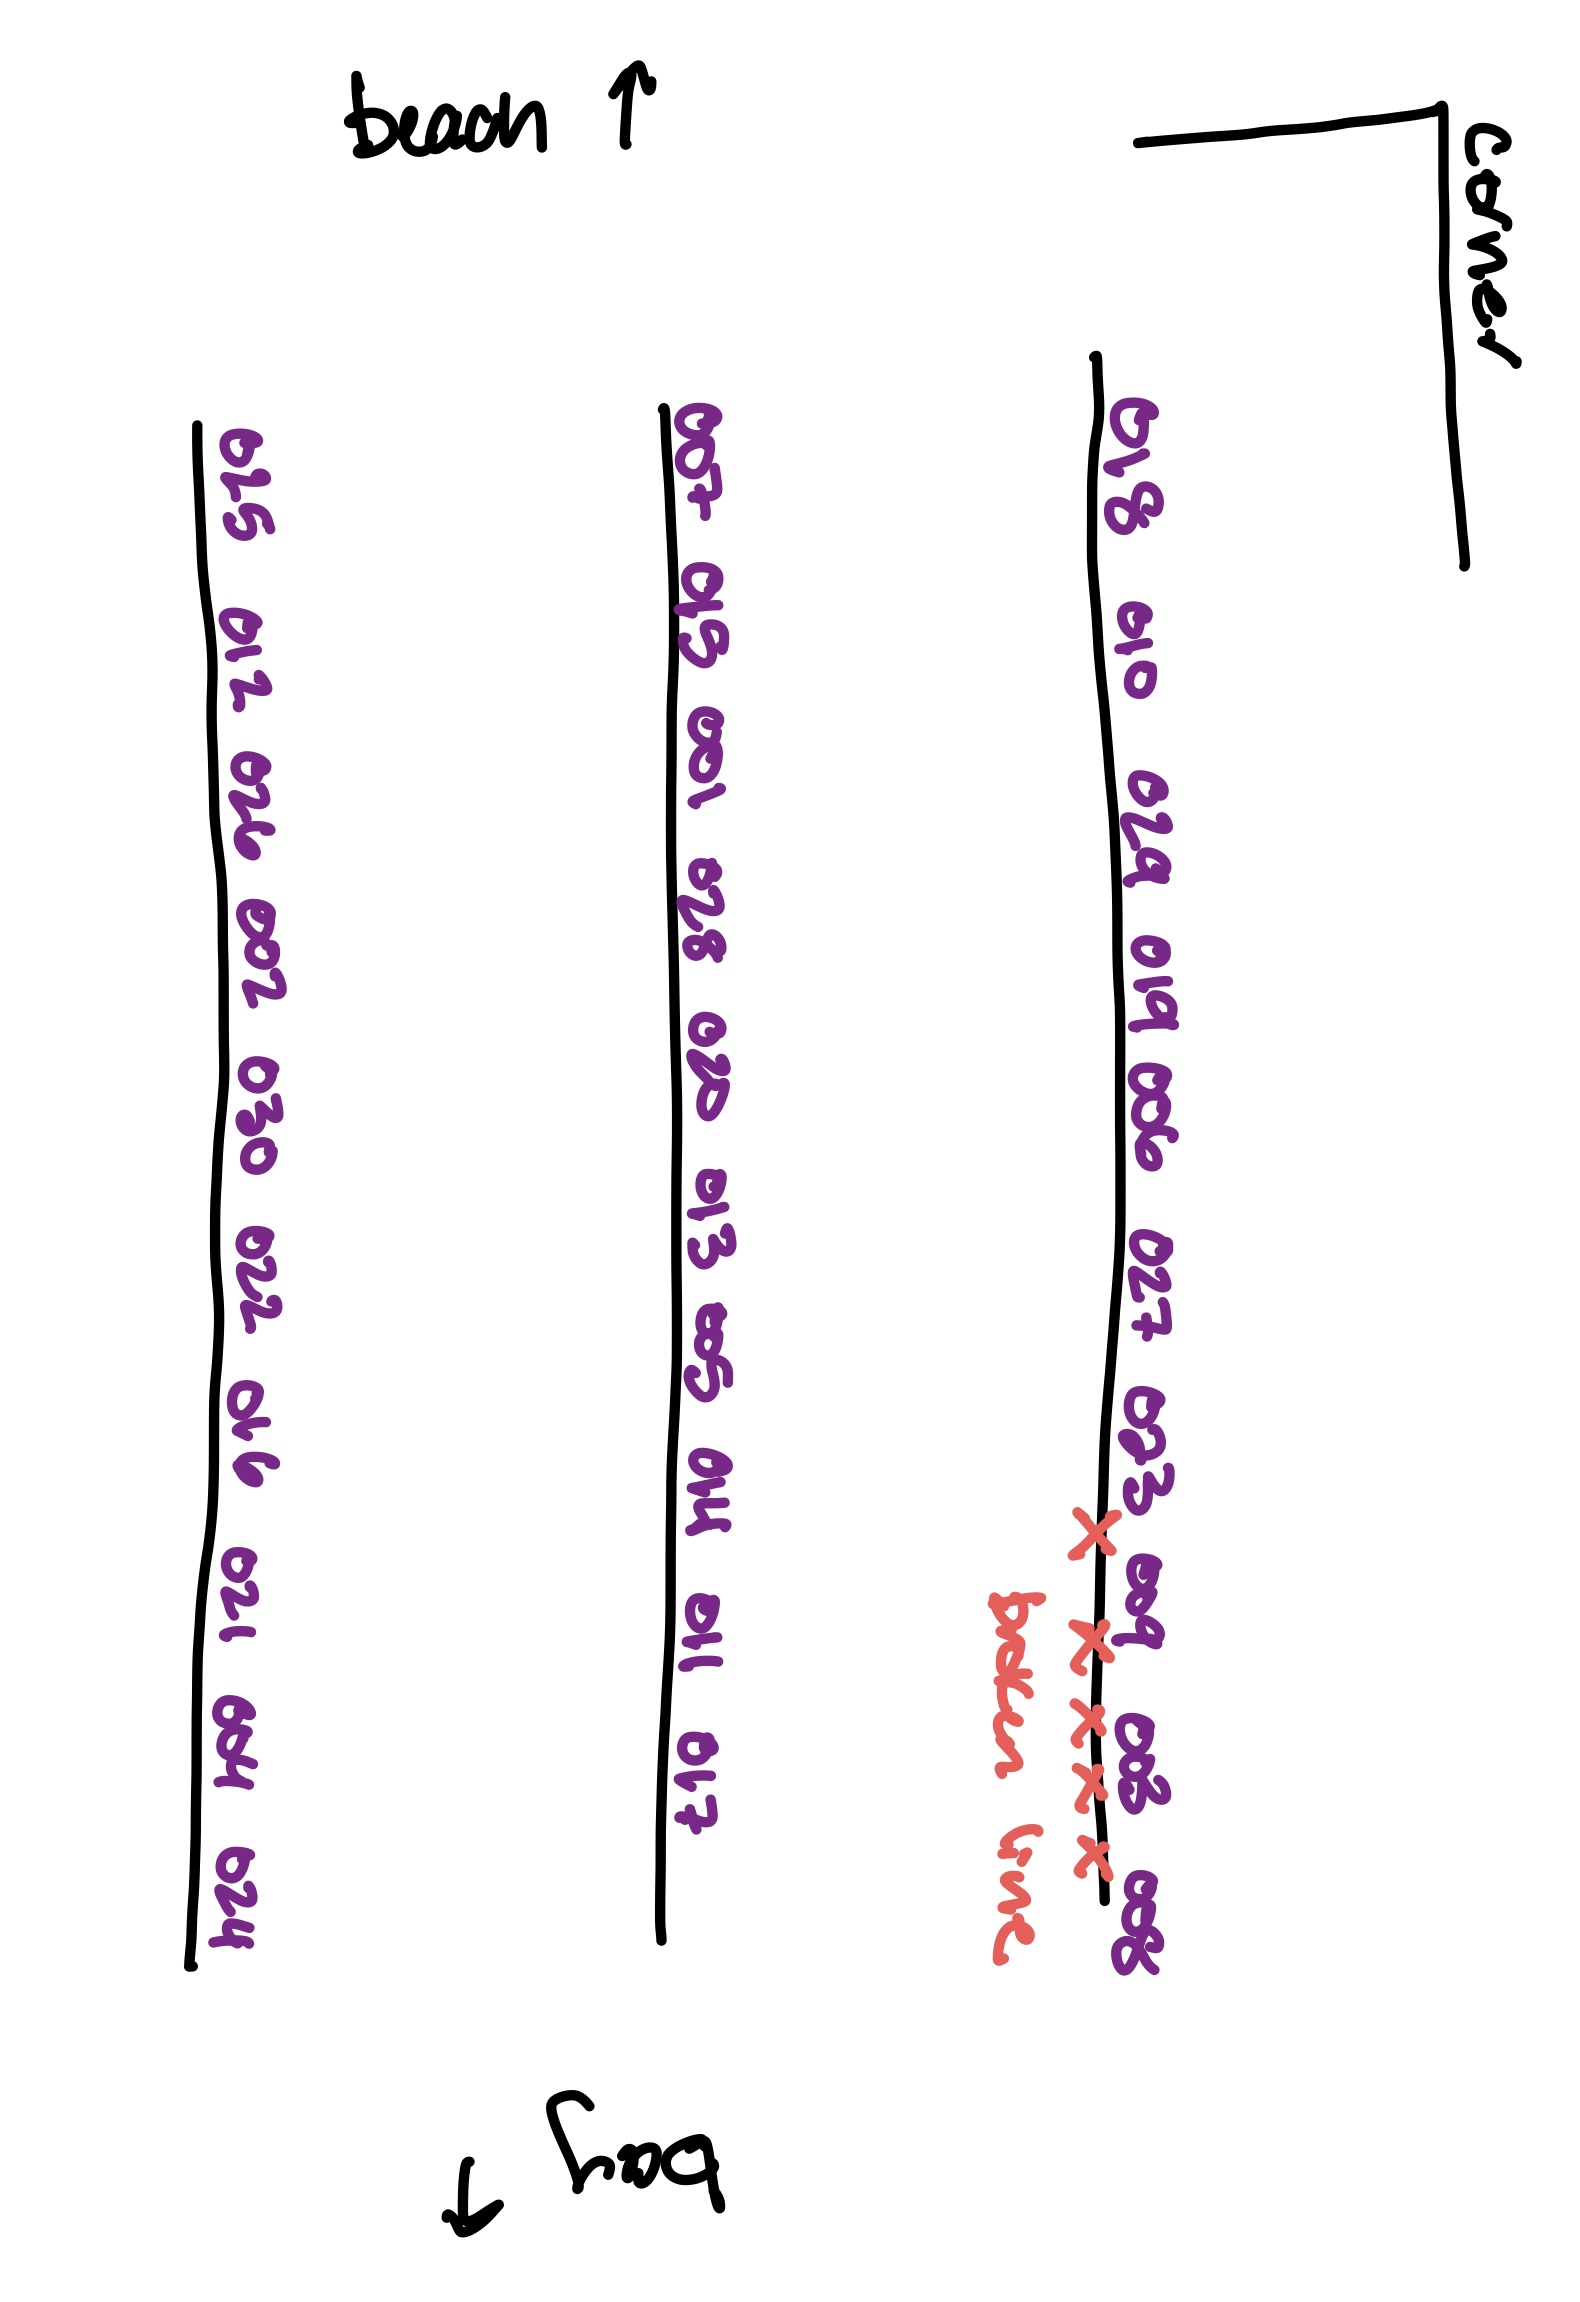 corner
018 010 029 019 006 027 023 009 003 008
broken line
007 015 001 028 020 013 005 014 011 017
beach ↑
bay ↑
025 012 026 002 030 022 016 021 004 024